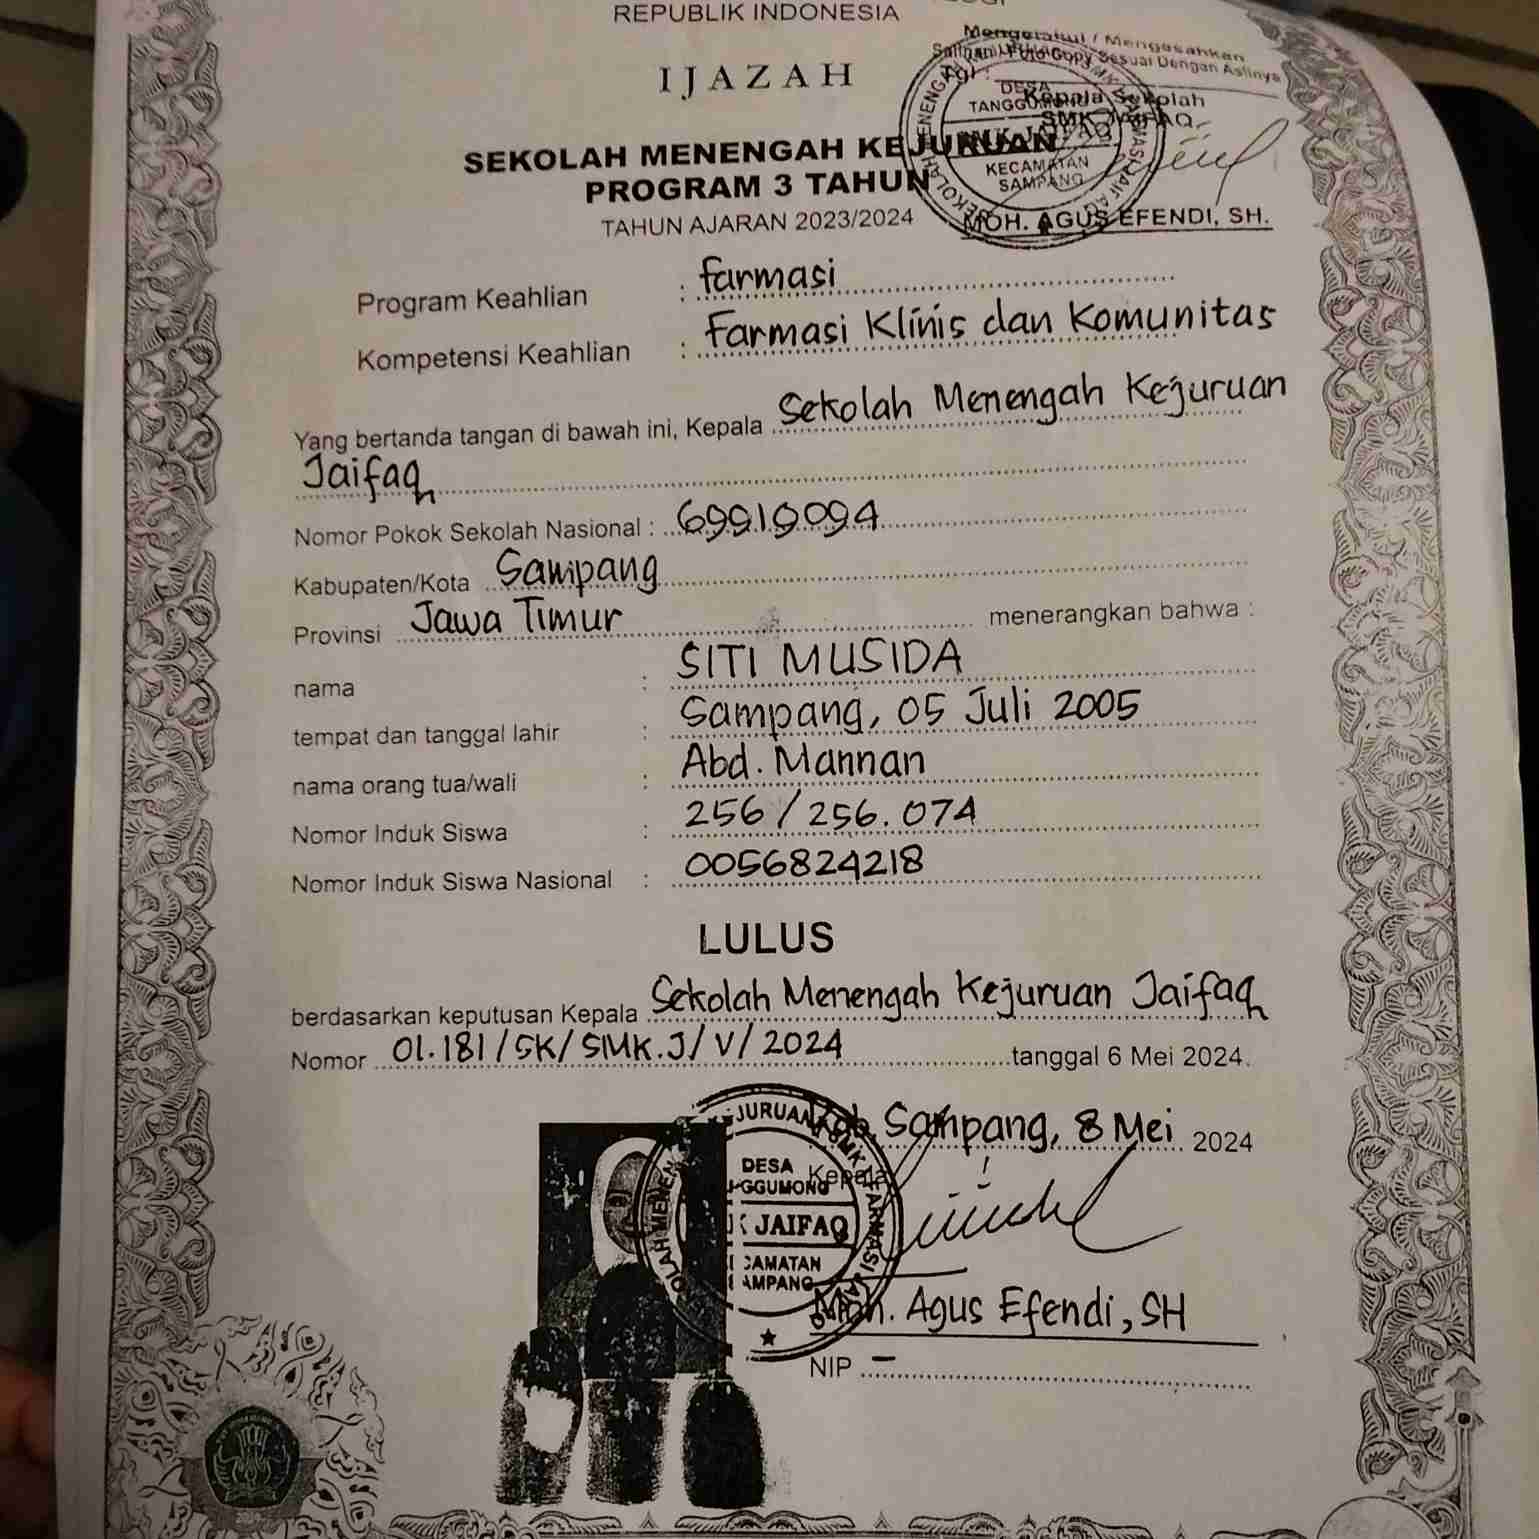 REPUBLIK INDONESIA
IJAZAH
Mengetahui / Mengesahkan
Salinan / Foto Copy Sesuai Dengan Aslinya
Tgl :
Kepala Sekolah
SMK JAIFAQ
DESA
TANGGUMONG
SMK JAIFAQ
KECAMATAN
SAMPANG
MOH. AGUS EFENDI, SH.
SEKOLAH MENENGAH KEJURUAN
PROGRAM 3 TAHUN
TAHUN AJARAN 2023/2024
Program Keahlian : Farmasi
Kompetensi Keahlian : Farmasi Klinis dan Komunitas
Yang bertanda tangan di bawah ini, Kepala Sekolah Menengah Kejuruan
Jaifaq
Nomor Pokok Sekolah Nasional : 69919094
Kabupaten/Kota Sampang
Provinsi Jawa Timur menerangkan bahwa :
nama : SITI MUSIDA
tempat dan tanggal lahir : Sampang, 05 Juli 2005
nama orang tua/wali : Abd. Mannan
Nomor Induk Siswa : 256/256.074
Nomor Induk Siswa Nasional : 0056824218
LULUS
berdasarkan keputusan Kepala Sekolah Menengah Kejuruan Jaifaq
Nomor 01.181/SK/SMK.J/V/2024 tanggal 6 Mei 2024.
Kab. Sampang, 8 Mei 2024
Kepala
DESA
GGUMONG
K JAIFAQ
CAMATAN
AMPANG
Moh. Agus Efendi, SH
NIP –